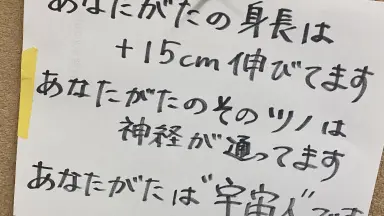 あなたがたの身長は
+15cm伸びてます
あなたがたのそのツノは
神経が通ってます
あなたがたは"宇宙人"です